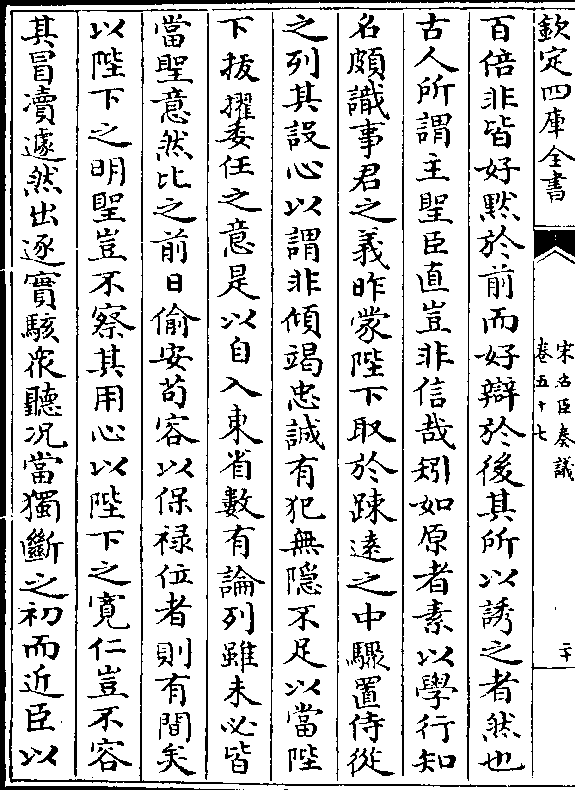 欽定四庫全書
宋名臣奏議
卷五十七
二十
百倍非皆好黙於前而好辯於後其所以誘之者然也
古人所謂主聖臣直豈非信哉矧如原者素以學行知
名頗識事君之義昨蒙陛下取於踈逺之中驟置侍從
之列其設心以謂非傾竭忠誠有犯無隠不足以當陛
下㧞擢委任之意是以自入東省數有論列雖未必皆
當聖意然比之前日偷安苟容以保禄位者則有間矣
以陛下之明聖豈不察其用心以陛下之寛仁豈不容
其冒瀆遽然出逐實駭衆聽况當獨斷之初而近臣以